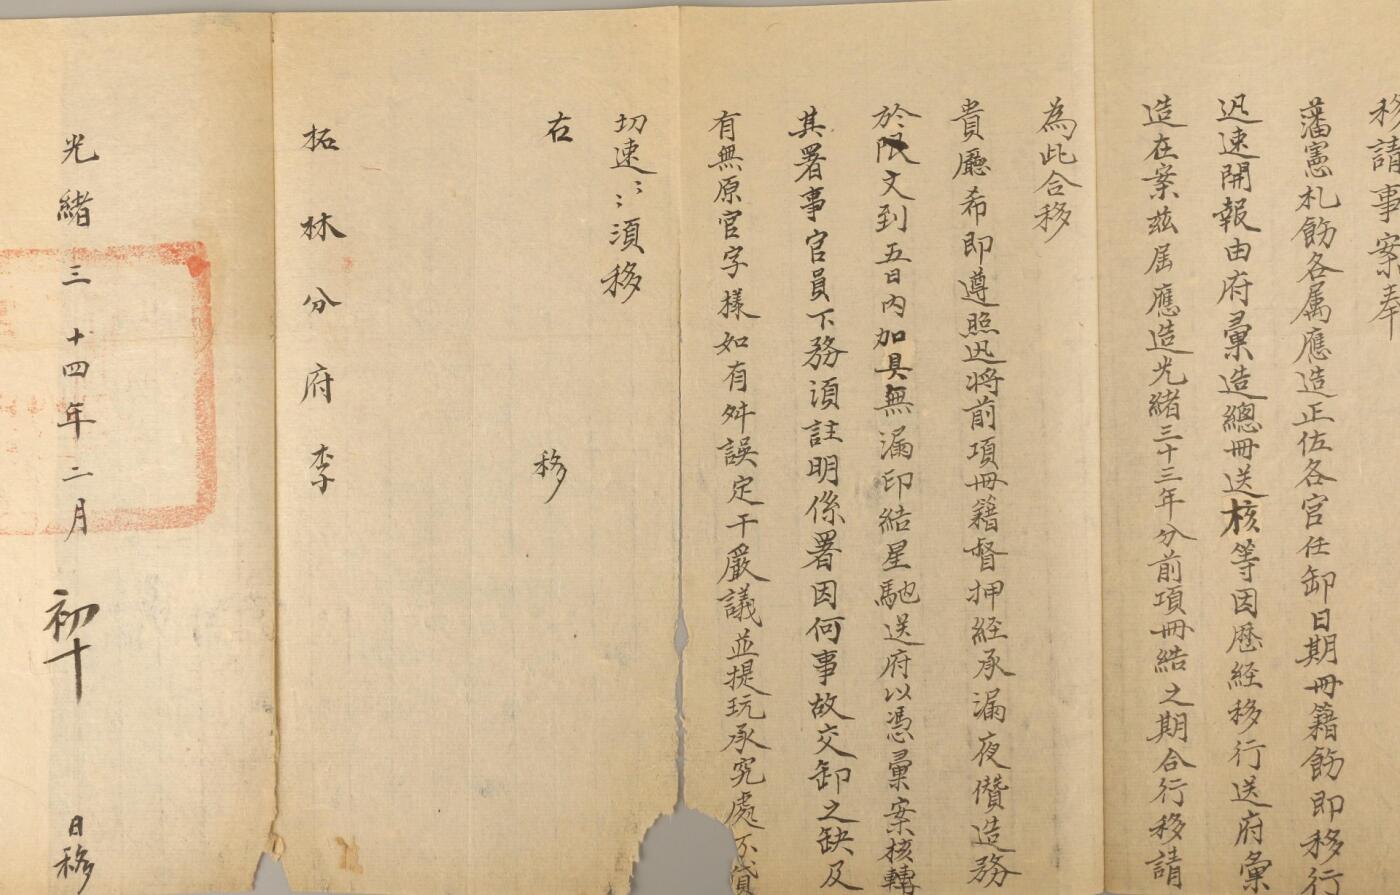 移請事案奉
藩憲札飭各属應造正佐各官任卸日期冊籍飭即移行
迅速開報由府彙造總冊送核等因歷經移行送府彙
造在案兹屆應造光緒三十三年分前項冊結之期合行移請
為此合移
貴廳希即遵照迅將前項冊籍督押経承漏夜儹造務
於限文到五日內加具無漏印結星馳送府以憑彙案核轉
其署事官員下務湏註明係署因何事故交卸之缺及
有無原官字樣如有舛誤定干嚴議並提玩承究處不貸
切速〻〻湏移
右 移
拓林分府李
光緒三十四年二月初十日移